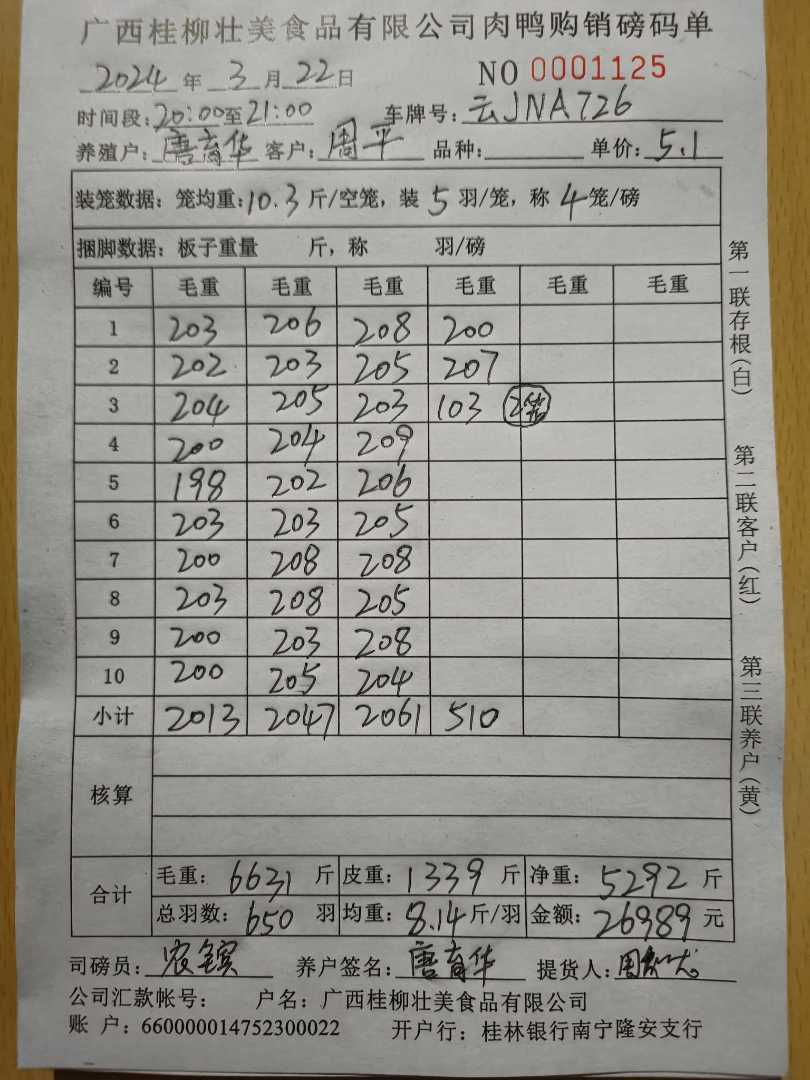 广西桂柳壮美食品有限公司肉鸭购销磅码单
2024 年 3 月 22 日 NO 0001125
时间段: 20:00至21:00 车牌号: 云JNA726
养殖户: 唐育华 客户: 周平 品种: 单价: 5.1
装笼数据: 笼均重: 10.3 斤/空笼, 装 5 羽/笼, 称 4 笼/磅
捆脚数据: 板子重量 斤, 称 羽/磅
编号 毛重 毛重 毛重 毛重 毛重 毛重
1 203 206 208 200
2 202 203 205 207
3 204 205 203 103 2笼
4 200 204 209
5 198 202 206
6 203 203 205
7 200 208 208
8 203 208 205
9 200 203 208
10 200 205 204
小计 2013 2047 2061 510
核算
合计 毛重: 6631 斤 皮重: 1339 斤 净重: 5292 斤
总羽数: 650 羽 均重: 8.14 斤/羽 金额: 26989 元
司磅员: 养户签名: 唐育华 提货人:
公司汇款帐号: 户名: 广西桂柳壮美食品有限公司
账 户: 660000014752300022 开户行: 桂林银行南宁隆安支行
第一联存根(白) 第二联客户(红) 第三联养户(黄)